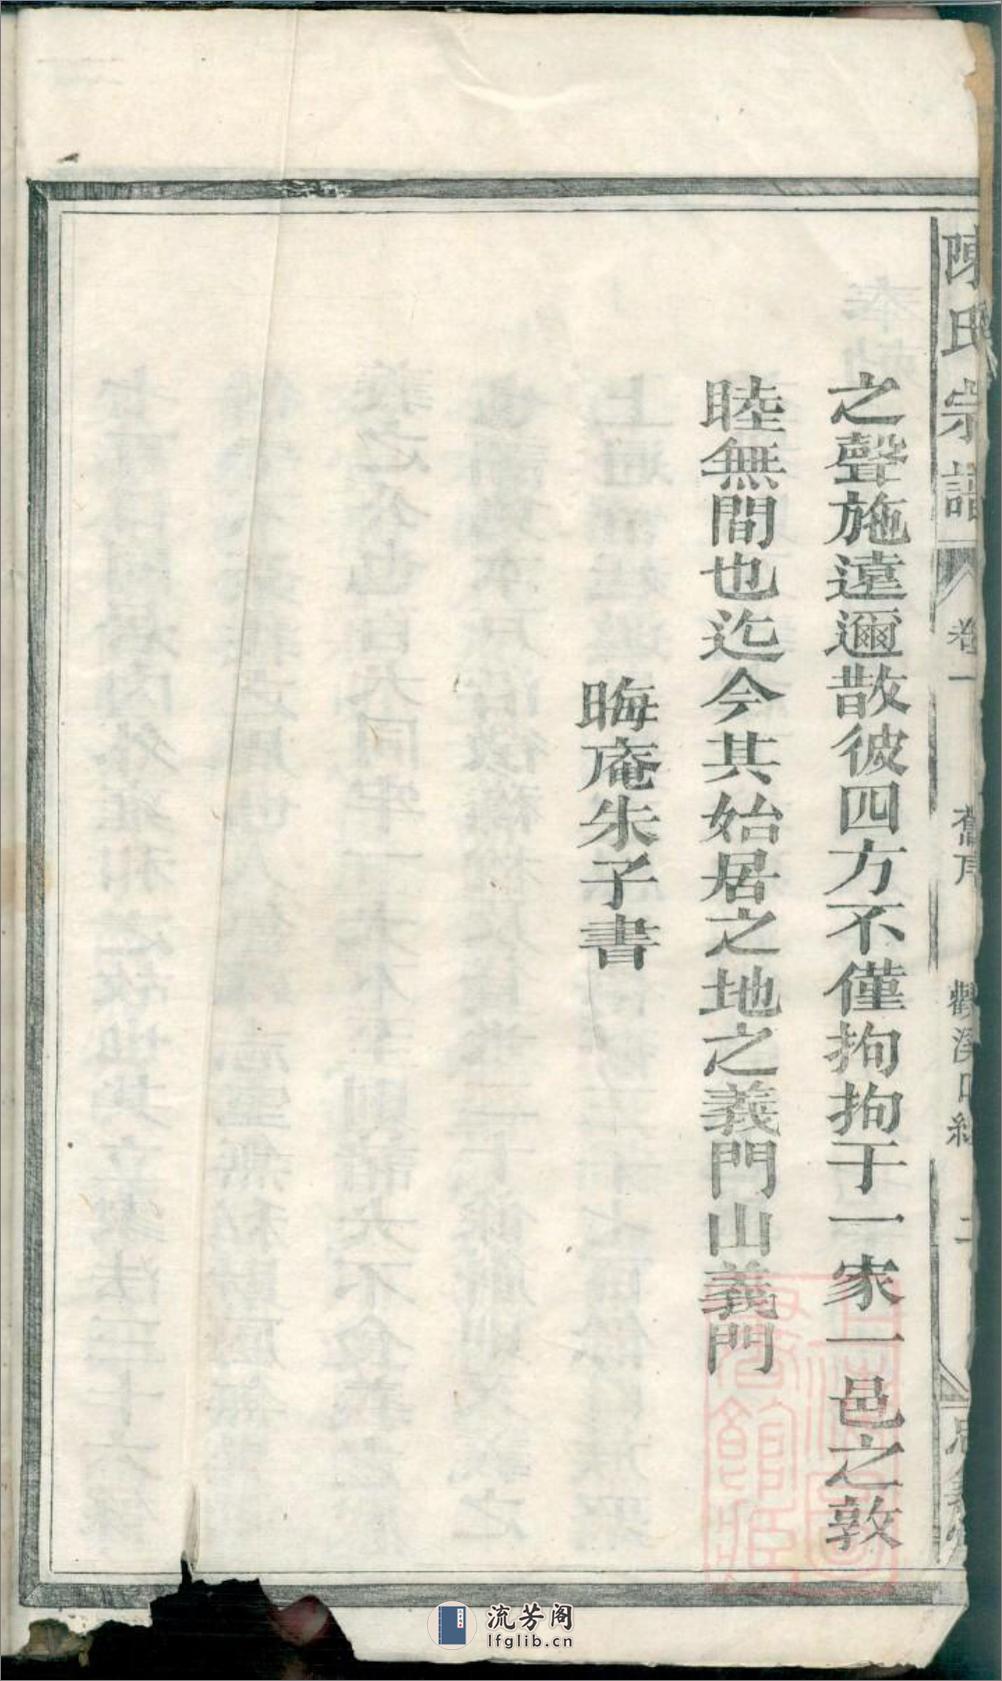 陳氏宗譜
卷一
舊序
二
之聲施遠邇散彼四方不僅拘拘于一家一邑之敦
睦無間也迄今其始居之地之義門山義門
晦庵朱子書
流芳阁
lfglib.cn